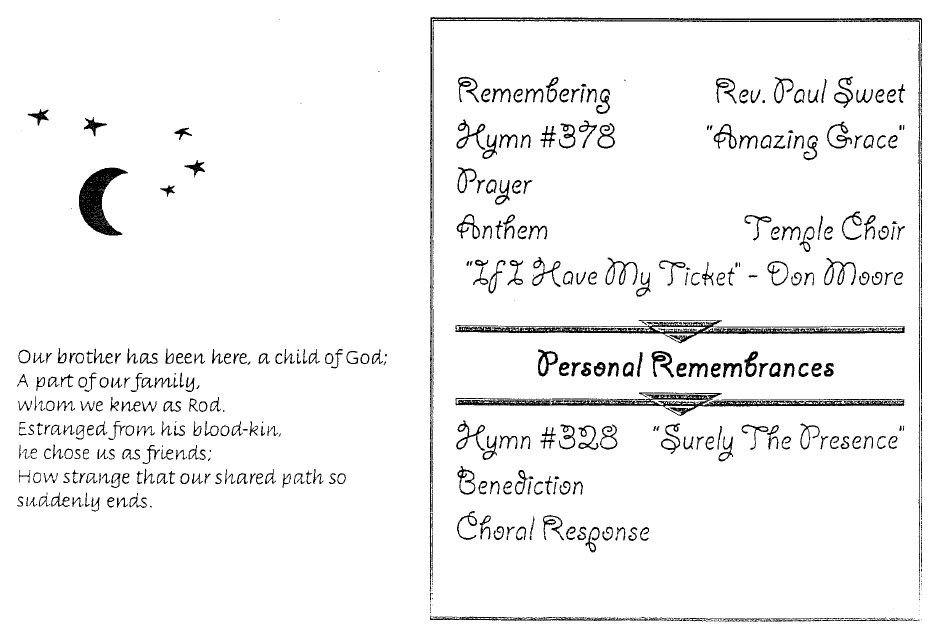 Our brother has been here, a child of God;
A part of our family,
whom we knew as Rod.
Estranged from his blood-kin,
he chose us as friends;
How strange that our shared path so
suddenly ends.
Remembering Rev. Paul Sweet
Hymn #378 "Amazing Grace"
Prayer
Anthem Temple Choir
"If I Have My Ticket" - Don Moore
Personal Remembrances
Hymn #328 "Surely The Presence"
Benediction
Choral Response